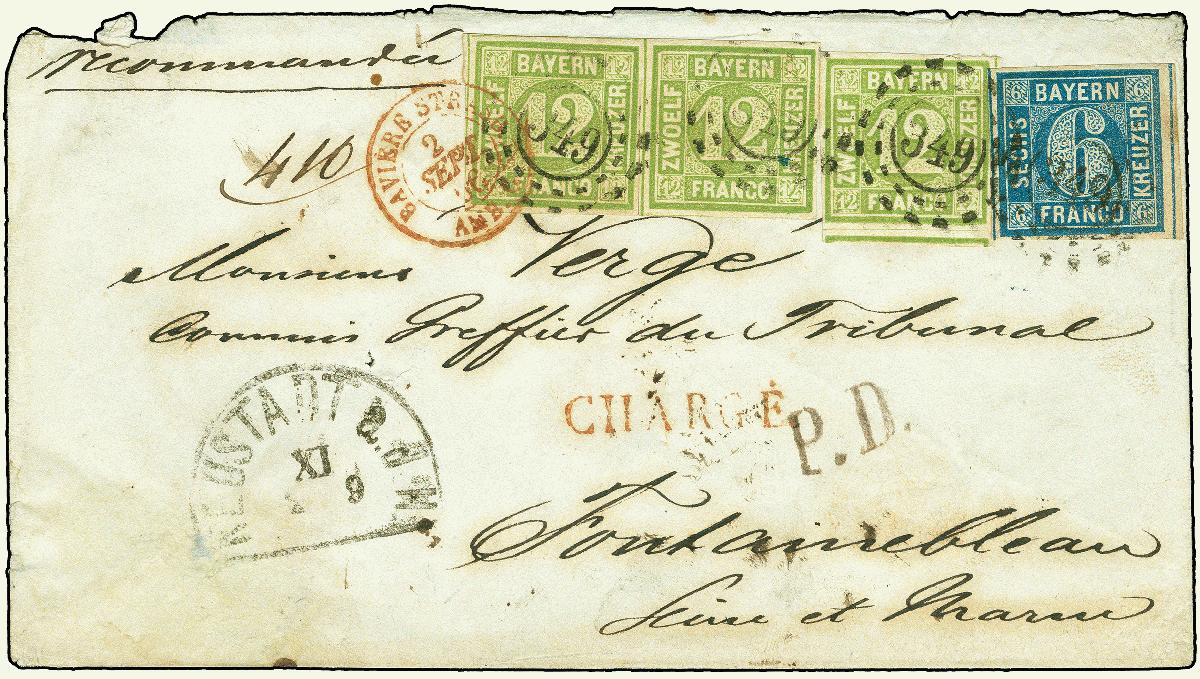 recommandée
410
BAVIERE STR
2
SEPT
AMB
BAYERN
12 12
ZWOELF 12 KREUZER
FRANCO
12 12
349
BAYERN
12 12
ZWOELF 12 KREUZER
FRANCO
12 12
BAYERN
12 12
ZWOELF 12 KREUZER
FRANCO
12 12
349
BAYERN
6 6
SECHS 6 KREUZER
FRANCO
6 6
Monsieur Vergé
Commis Greffier du Tribunal
NEUSTADT A.
XI
9
CHARGÉ
P.D.
Fontainebleau
Seine et Marne